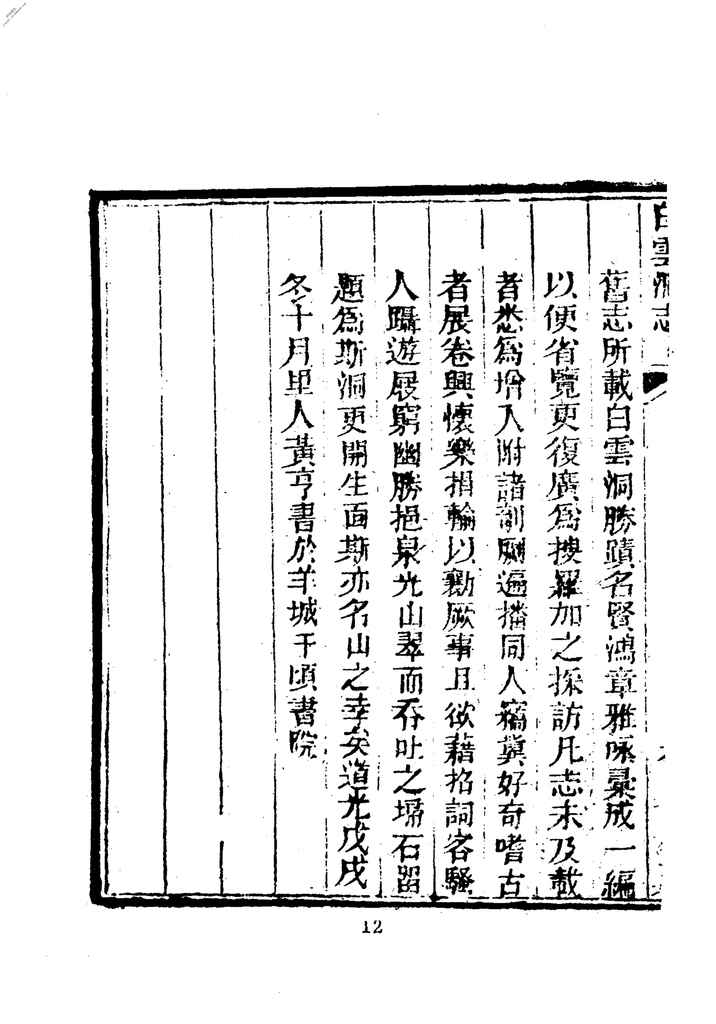 白雲洞志
舊志所載白雲洞勝蹟名賢鴻章雅咏彙成一編
以便省覽更復廣爲搜羅加之採訪凡志未及載
者悉爲增入附諸剞劂遍播同人竊冀好奇嗜古
者展卷興懷樂捐輸以勷厥事且欲藉招詞客騷
人躡遊屐窮幽勝挹泉光山翠而吞吐之埽石留
題爲斯洞更開生面斯亦名山之幸矣道光戊戌
冬十月里人黃亨書於羊城千頃書院
12